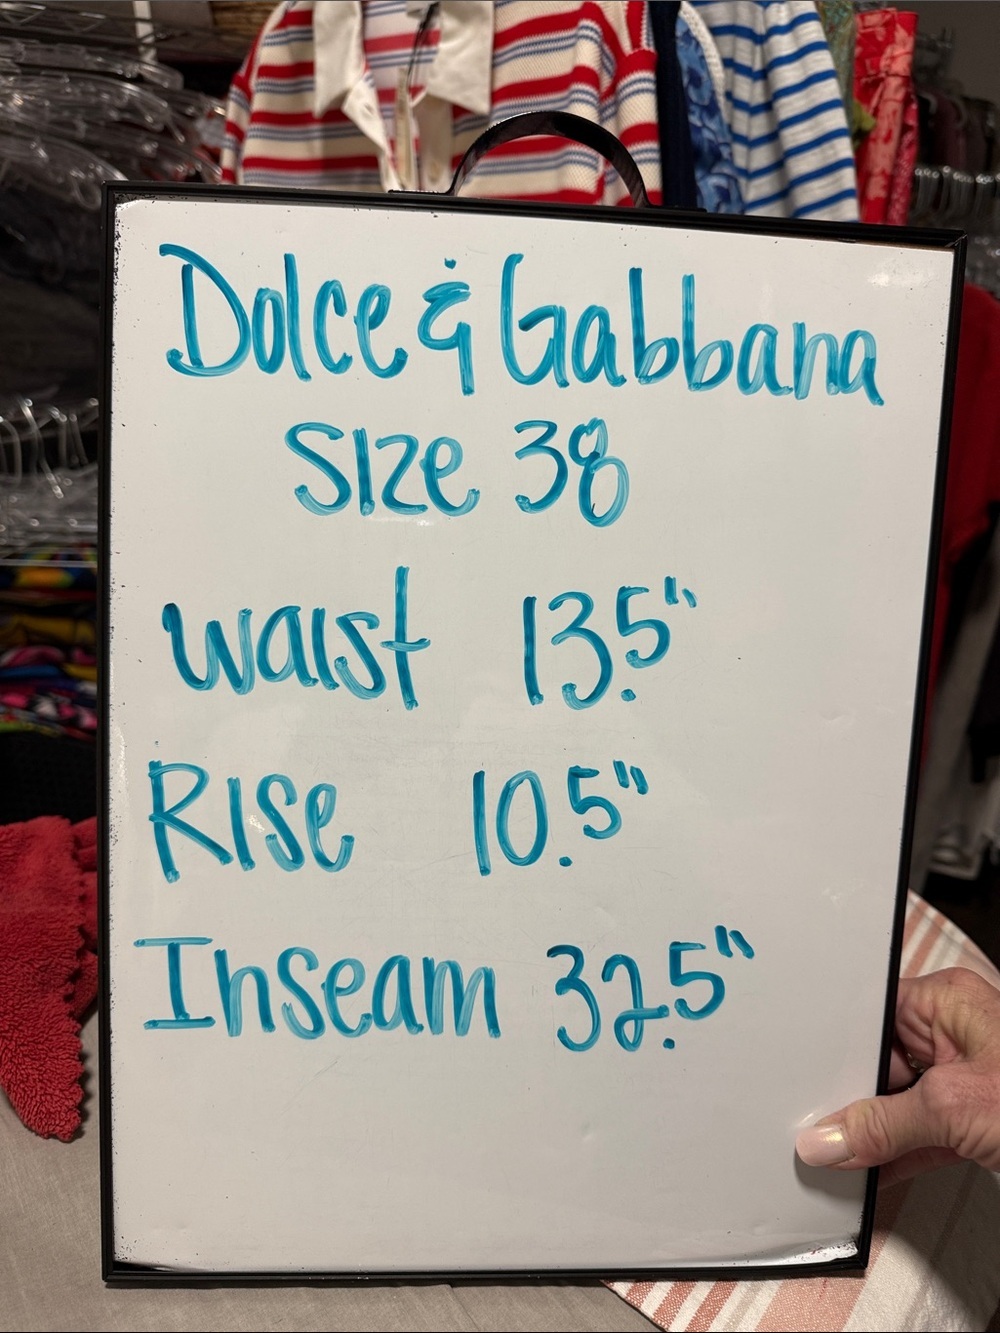 Dolce & Gabbana
Size 38
Waist 13.5"
Rise 10.5"
Inseam 32.5"